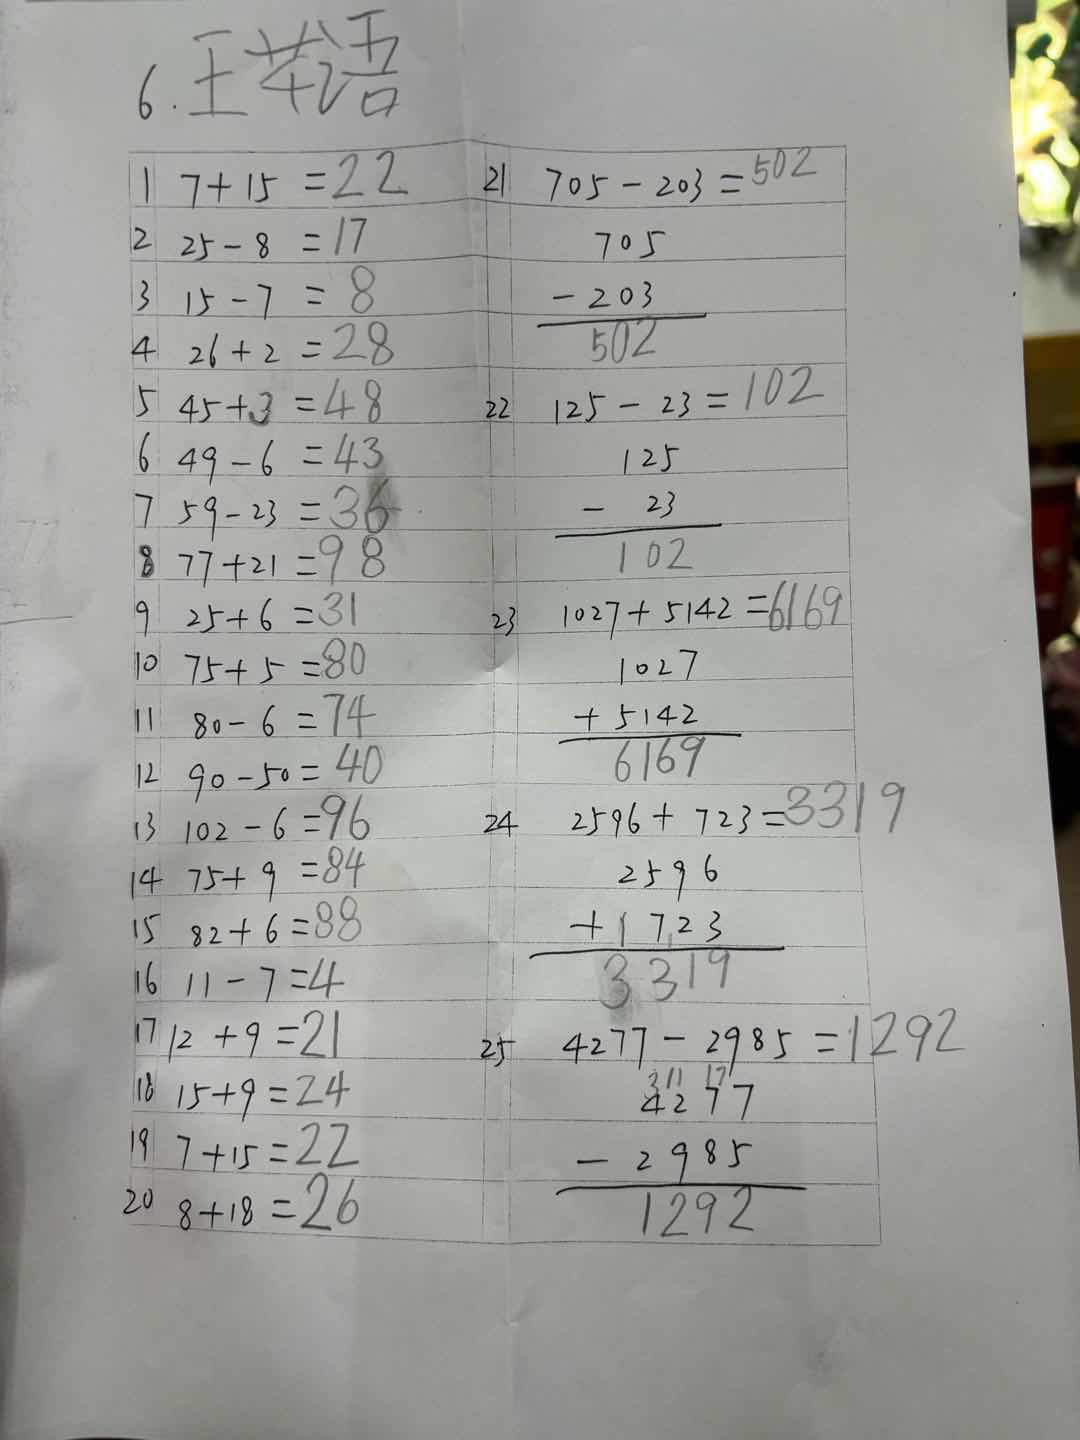 6. 王英语
1 7+15 =22
2 25-8 =17
3 15-7 =8
4 26+2 =28
5 45+3 =48
6 49-6 =43
7 59-23 =36
8 77+21 =98
9 25+6 =31
10 75+5 =80
11 80-6 =74
12 90-50= 40
13 102-6 =96
14 75+9 =84
15 82+6 =88
16 11-7 =4
17 12+9 =21
18 15+9 =24
19 7+15 =22
20 8+18 =26
21 705-203 =502
705
-203
502
22 125-23 =102
125
- 23
102
23 1027+5142 =6169
1027
+5142
6169
24 2596+723 =3319
2596
+1723
3319
25 4277-2985 =1292
3 11 17
4277
-2985
1292